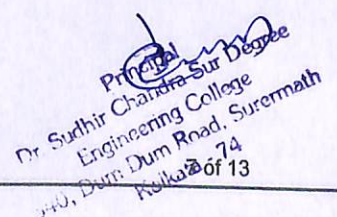 Principal
Dr. Sudhir Chandra Sur Degree
Engineering College
540, Dum Dum Road, Surermath
Kolkata 74
of 13